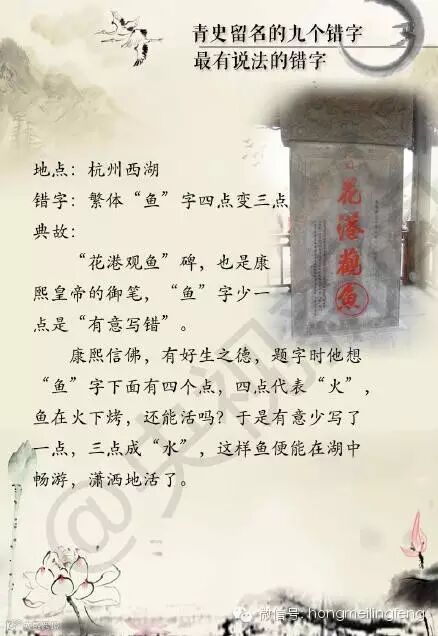 青史留名的九个错字
最有说法的错字
地点：杭州西湖
错字：繁体“鱼”字四点变三点
典故：
“花港观鱼”碑，也是康
熙皇帝的御笔，“鱼”字少一
点是“有意写错”。
康熙信佛，有好生之德，题字时他想
“鱼”字下面有四个点，四点代表“火”，
鱼在火下烤，还能活吗？于是有意少写了
一点，三点成“水”，这样鱼便能在湖中
畅游，潇洒地活了。
花港觀魚
@央视
微信号：hongmeilingfeng